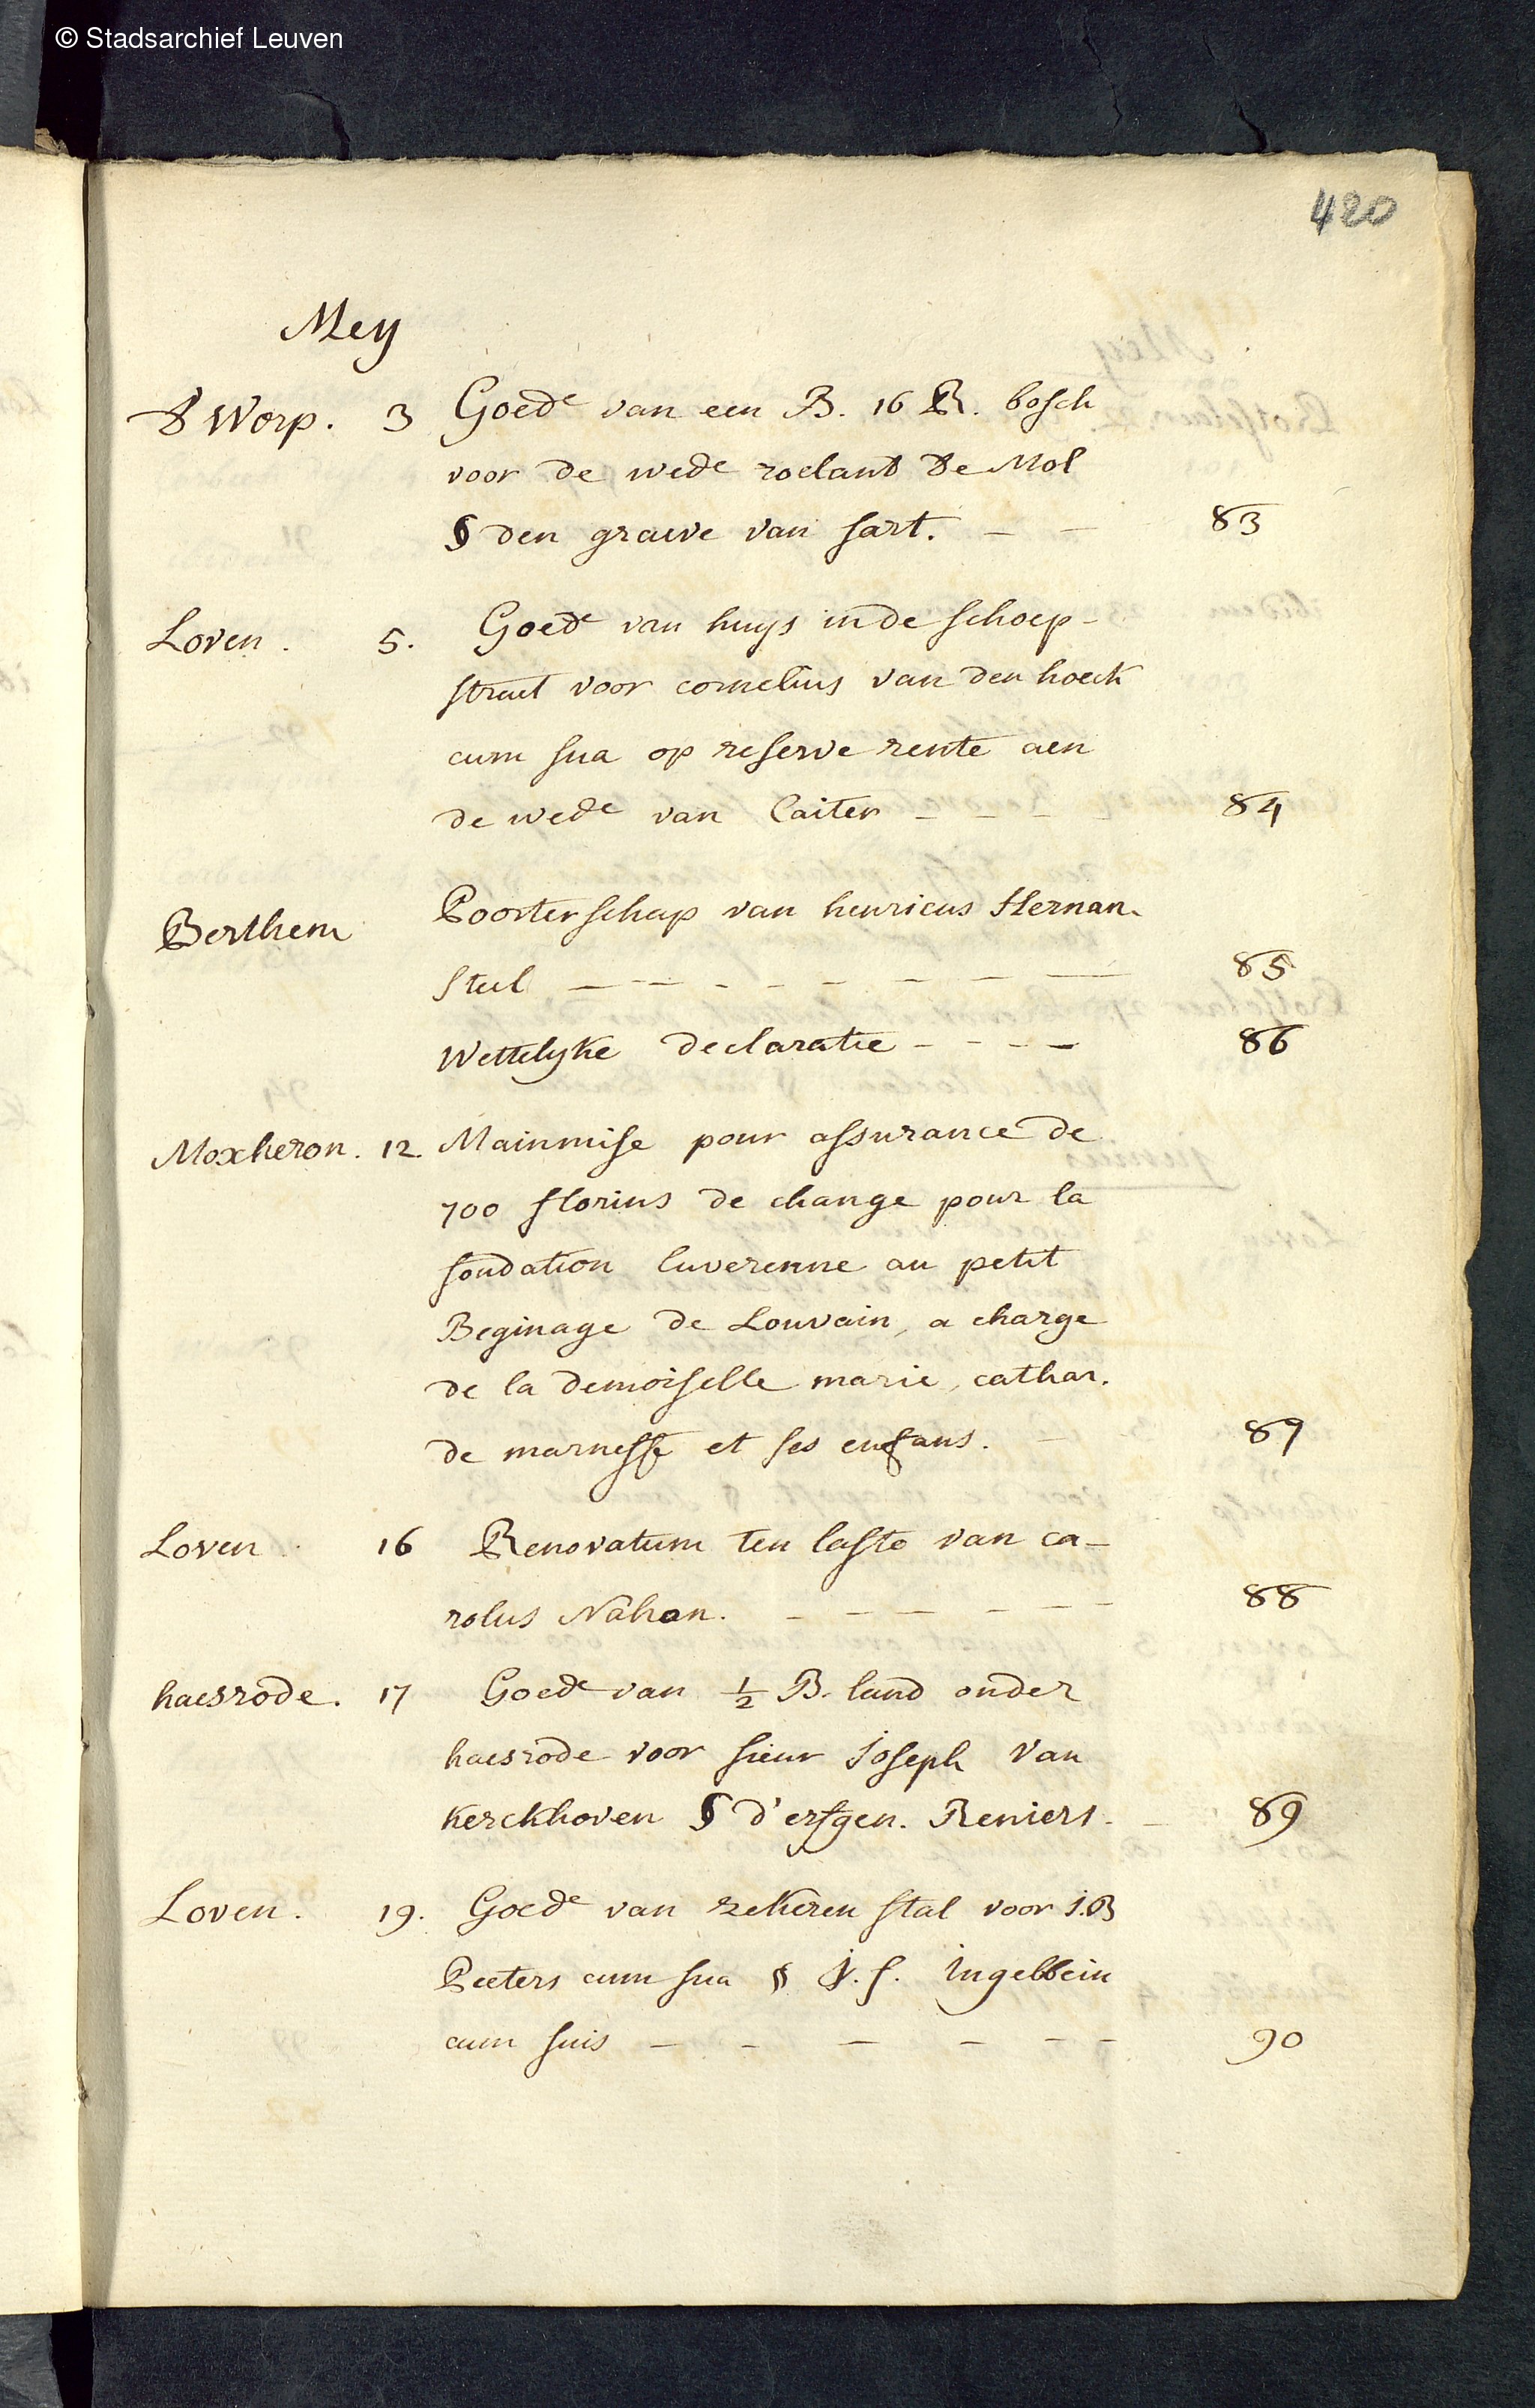 © Stadsarchief Leuven
420
Mey
Worp. 3 Goede van een B. 16 R. bosch
voor de wede roelant De Mol
§ den graeve van sart. — — 83
Loven. 5. Goede van huys inde schoep-
straet voor cornelius van den hoeck
cum sua op reserve rente aen
de wede van Caiter — — — 84
Berthem Poorterschap van henricus Hernan-
steel — — — — — — — 85
Wettelyke declaratie — — — — 86
Moxheron. 12. Mainmise pour assurance de
700 florins de change pour la
fondation luverenne au petit
Beginage de Louvain, a charge
de la demoiselle marie, cathar.
de marneffe et ses enfans. — 87
Loven. 16 Renovatum ten laste van ca-
rolus Nahon. — — — — — — 88
haesrode. 17 Goede van ½ B. land onder
haesrode voor sieur Joseph Van
Kerckhoven § d'erfgen. Reniers. — 89
Loven. 19. Goede van zekeren stal voor J.B
Peeters cum sua § J. f. Ingelbein
cum suis — — — — — — 90